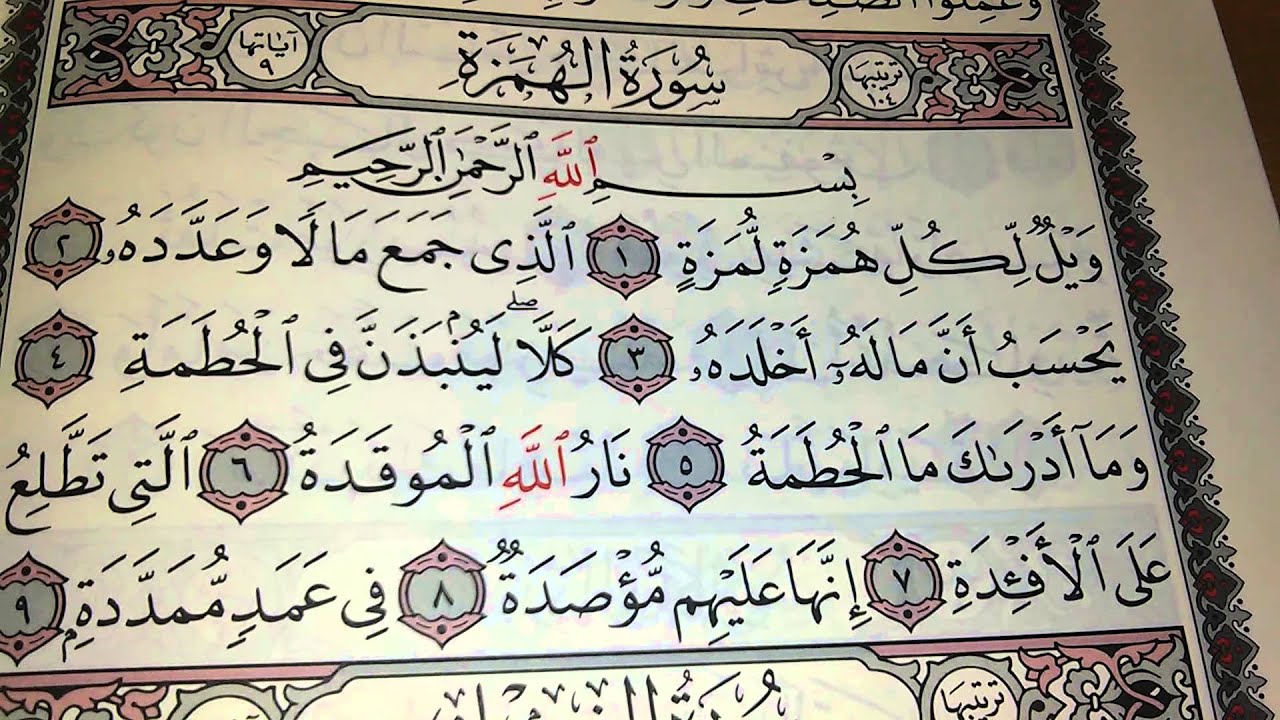 وَعَمِلُوا۟ ٱلصَّـٰلِحَـٰتِ
آيَاتُهَا ٩ سُورَةُ الهُمَزَةِ تَرْتِيبُهَا ١٠٤
بِسْمِ ٱللَّهِ ٱلرَّحْمَـٰنِ ٱلرَّحِيمِ
وَيْلٌ لِّكُلِّ هُمَزَةٍ لُّمَزَةٍ ١ ٱلَّذِى جَمَعَ مَالًا وَعَدَّدَهُۥ ٢
يَحْسَبُ أَنَّ مَالَهُۥٓ أَخْلَدَهُۥ ٣ كَلَّا ۖ لَيُنۢبَذَنَّ فِى ٱلْحُطَمَةِ ٤
وَمَآ أَدْرَىٰكَ مَا ٱلْحُطَمَةُ ٥ نَارُ ٱللَّهِ ٱلْمُوقَدَةُ ٦ ٱلَّتِى تَطَّلِعُ
عَلَى ٱلْأَفْـِٔدَةِ ٧ إِنَّهَا عَلَيْهِم مُّؤْصَدَةٌ ٨ فِى عَمَدٍ مُّمَدَّدَةٍۭ ٩
سُورَةُ تَرْتِيبُهَا